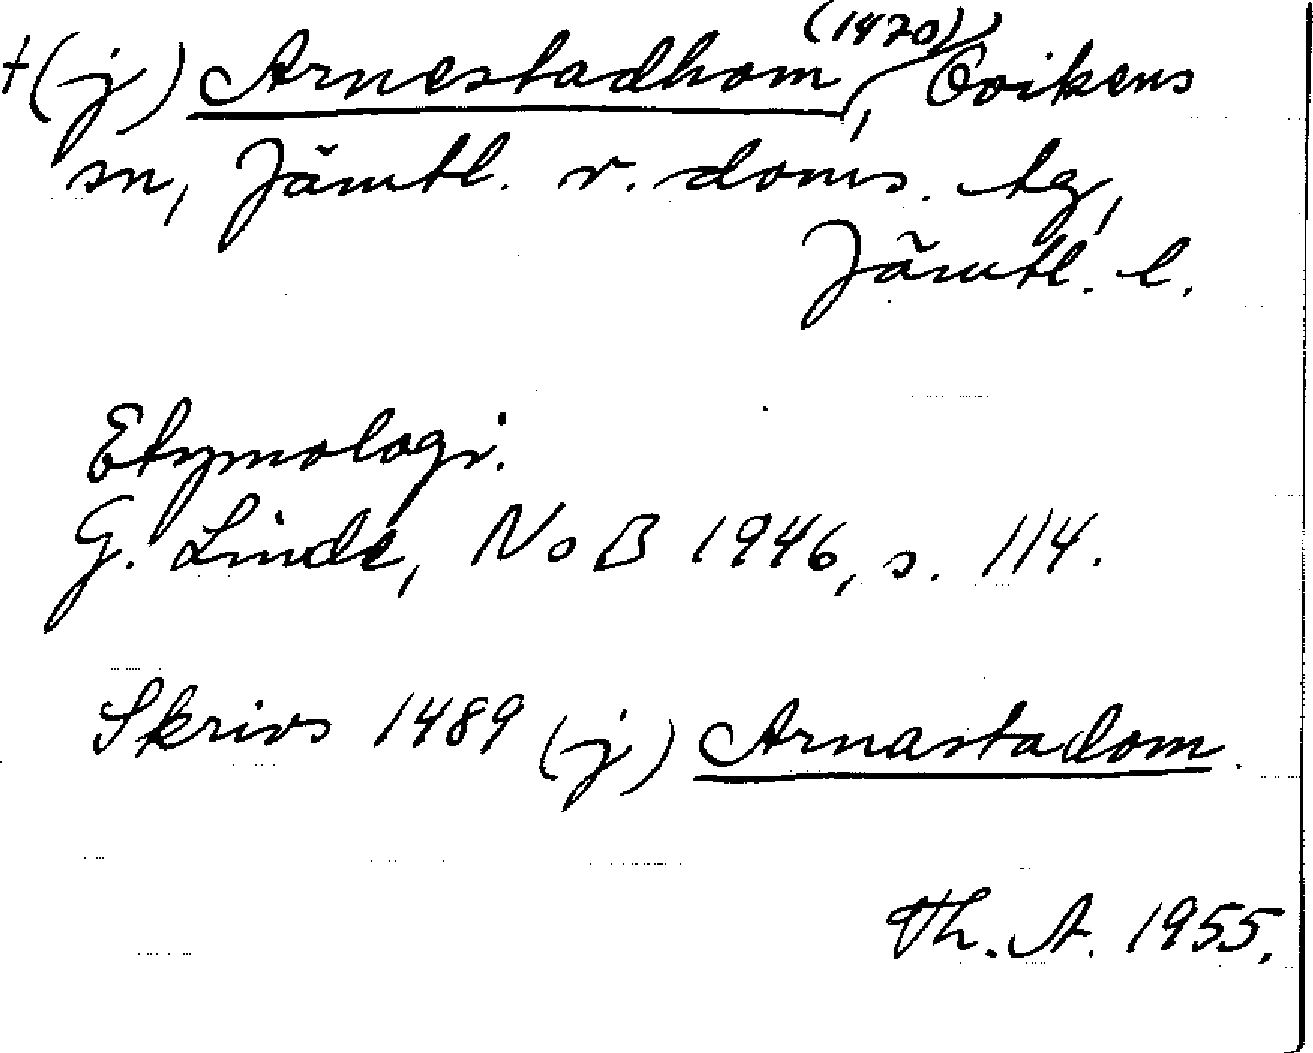 †(j) Arnestadhom (1420), Ovikens
sn, Jämtl. v. doms. tg,
Jämtl. l.
Etymologi.
G. Linde, NoB 1946, s. 114.
Skrivs 1489 (j) Arnastadom.
Th. A. 1955.